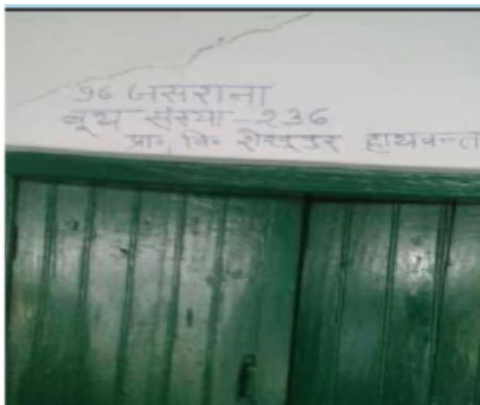 96 जसराना
बूथ संख्या - 236
प्रा० वि० शेखूपुर हाथवन्त